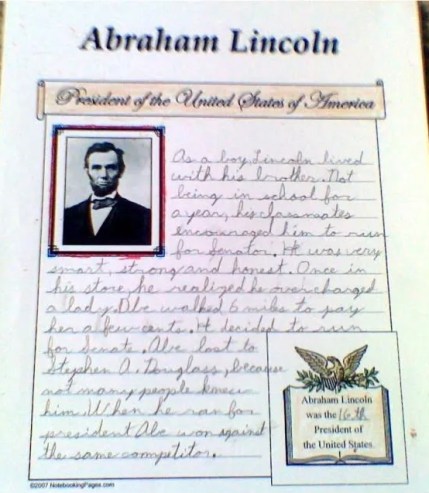 Abraham Lincoln
President of the United States of America
As a boy, Lincoln lived
with his brother. Not
being in school for
a year, his classmates
encouraged him to run
for senator. He was very
smart, strong and honest. Once in
his store, he realized he overcharged
a lady. Abe walked 6 miles to pay
her a few cents. He decided to run
for senate. Abe lost to
Stephen A. Douglass, because
not many people knew
him. When he ran for
president Abe won against
the same competitor.
Abraham Lincoln
was the 16th
President of
the United States.
©2007 NotebookingPages.com